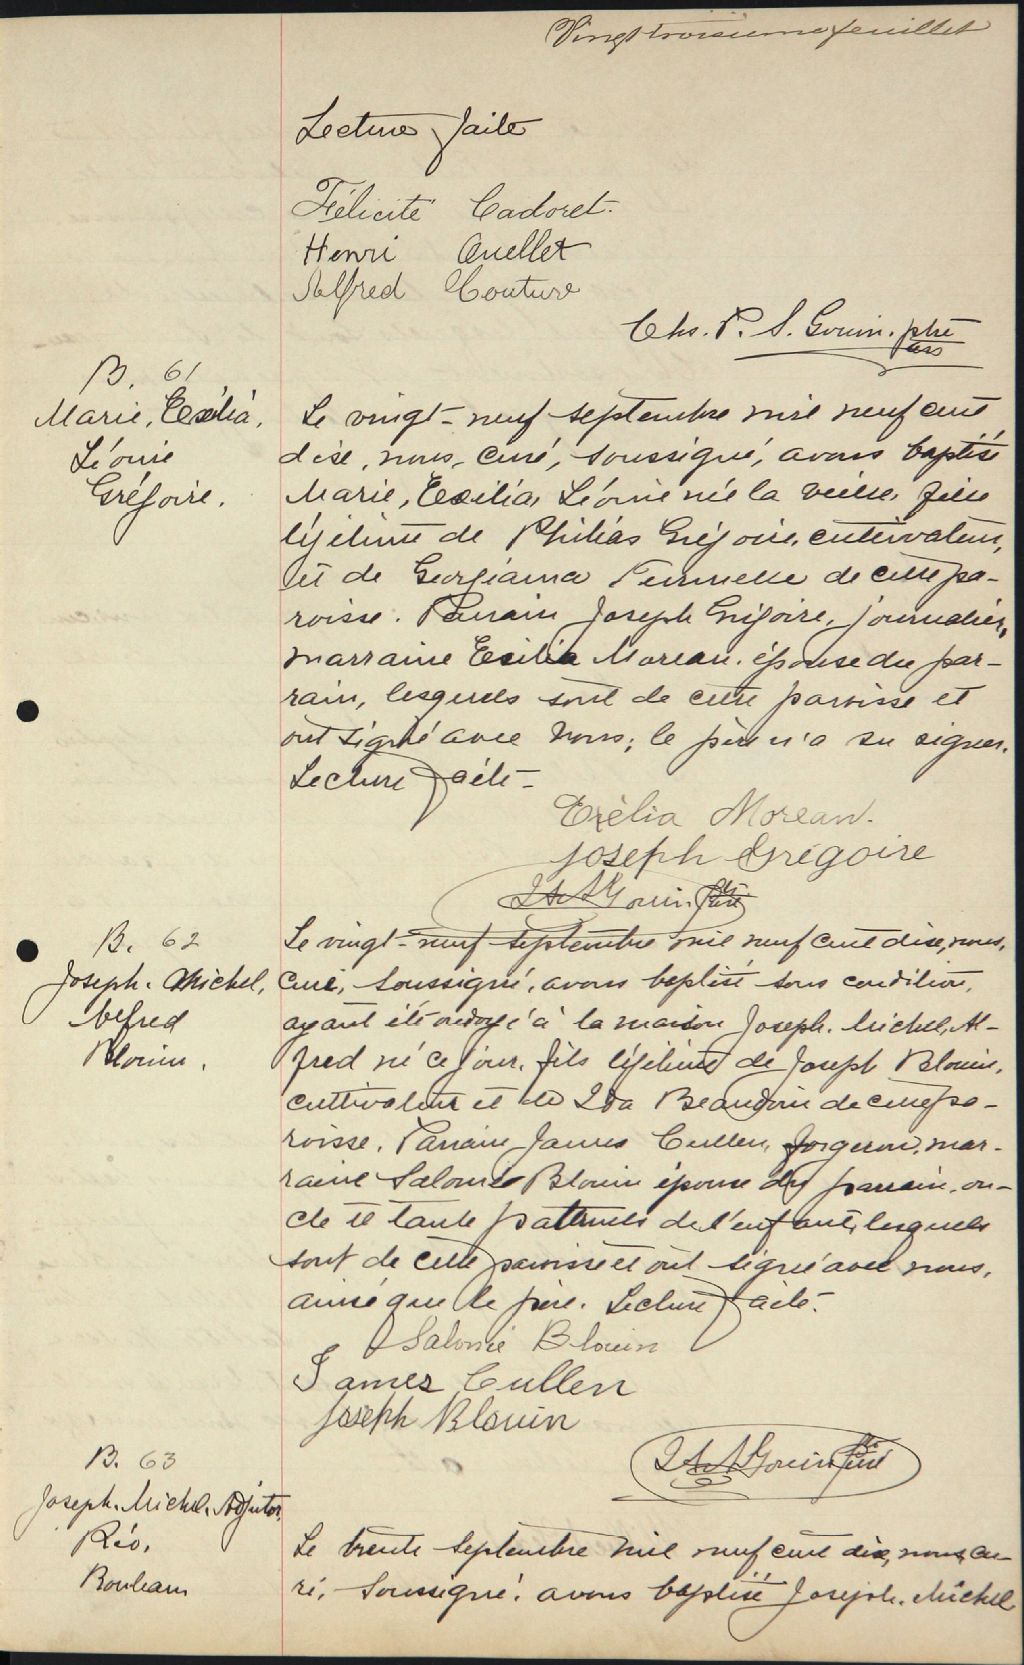 Vingt troisieme feuillet
Lecture faite
Félicité Cadoret.
Henri Ouellet
Alfred Couture
Chs. P. S. Gouin. ptre
B. 61
Marie, Exélia,
Léonie
Grégoire.
Le vingt-neuf septembre mil neuf cent
dise, nous, curé, soussigné, avons baptisé
Marie, Exilia, Léonie née la veille, fille
légitime de Philias Grégoire, cultivateur,
et de Georgianna de cette pa-
roisse. Parrain Joseph Grégoire, journalier,
marraine Exilia Moreau. épouse du par-
rain, lesquels sont de cette paroisse et
ont signé avec nous; le père n'a su signer.
Lecture faite-
Exélia Moreau.
Joseph Grégoire
Gouin ptre curé
B. 62
Joseph. Michel,
Alfred
Blouin.
Le vingt-neuf septembre mil neuf cent dise, nous,
curé, soussigné, avons baptisé sous condition,
ayant été ondoyé à la maison Joseph. Michel, Al-
fred né ce jour. fils légitime de Joseph Blouin,
cultivateur et de Ida Beaudoin de cette pa-
roisse. Parrain James Cullen, forgeron, mar-
raine Salomé Blouin épouse du parrain, on-
cle et tante paternels de l'enfant, lesquels
sont de cette paroisse et ont signé avec nous,
ainsi que le père. Lecture faite.
Salomé Blouin
James Cullen
Joseph Blouin
Gouin ptre curé
B. 63
Joseph. Michel. Adjutor,
Réo,
Bouleau
Le trente septembre mil neuf cent dix, nous, cu-
ré, soussigné, avons baptisé Joseph. Michel